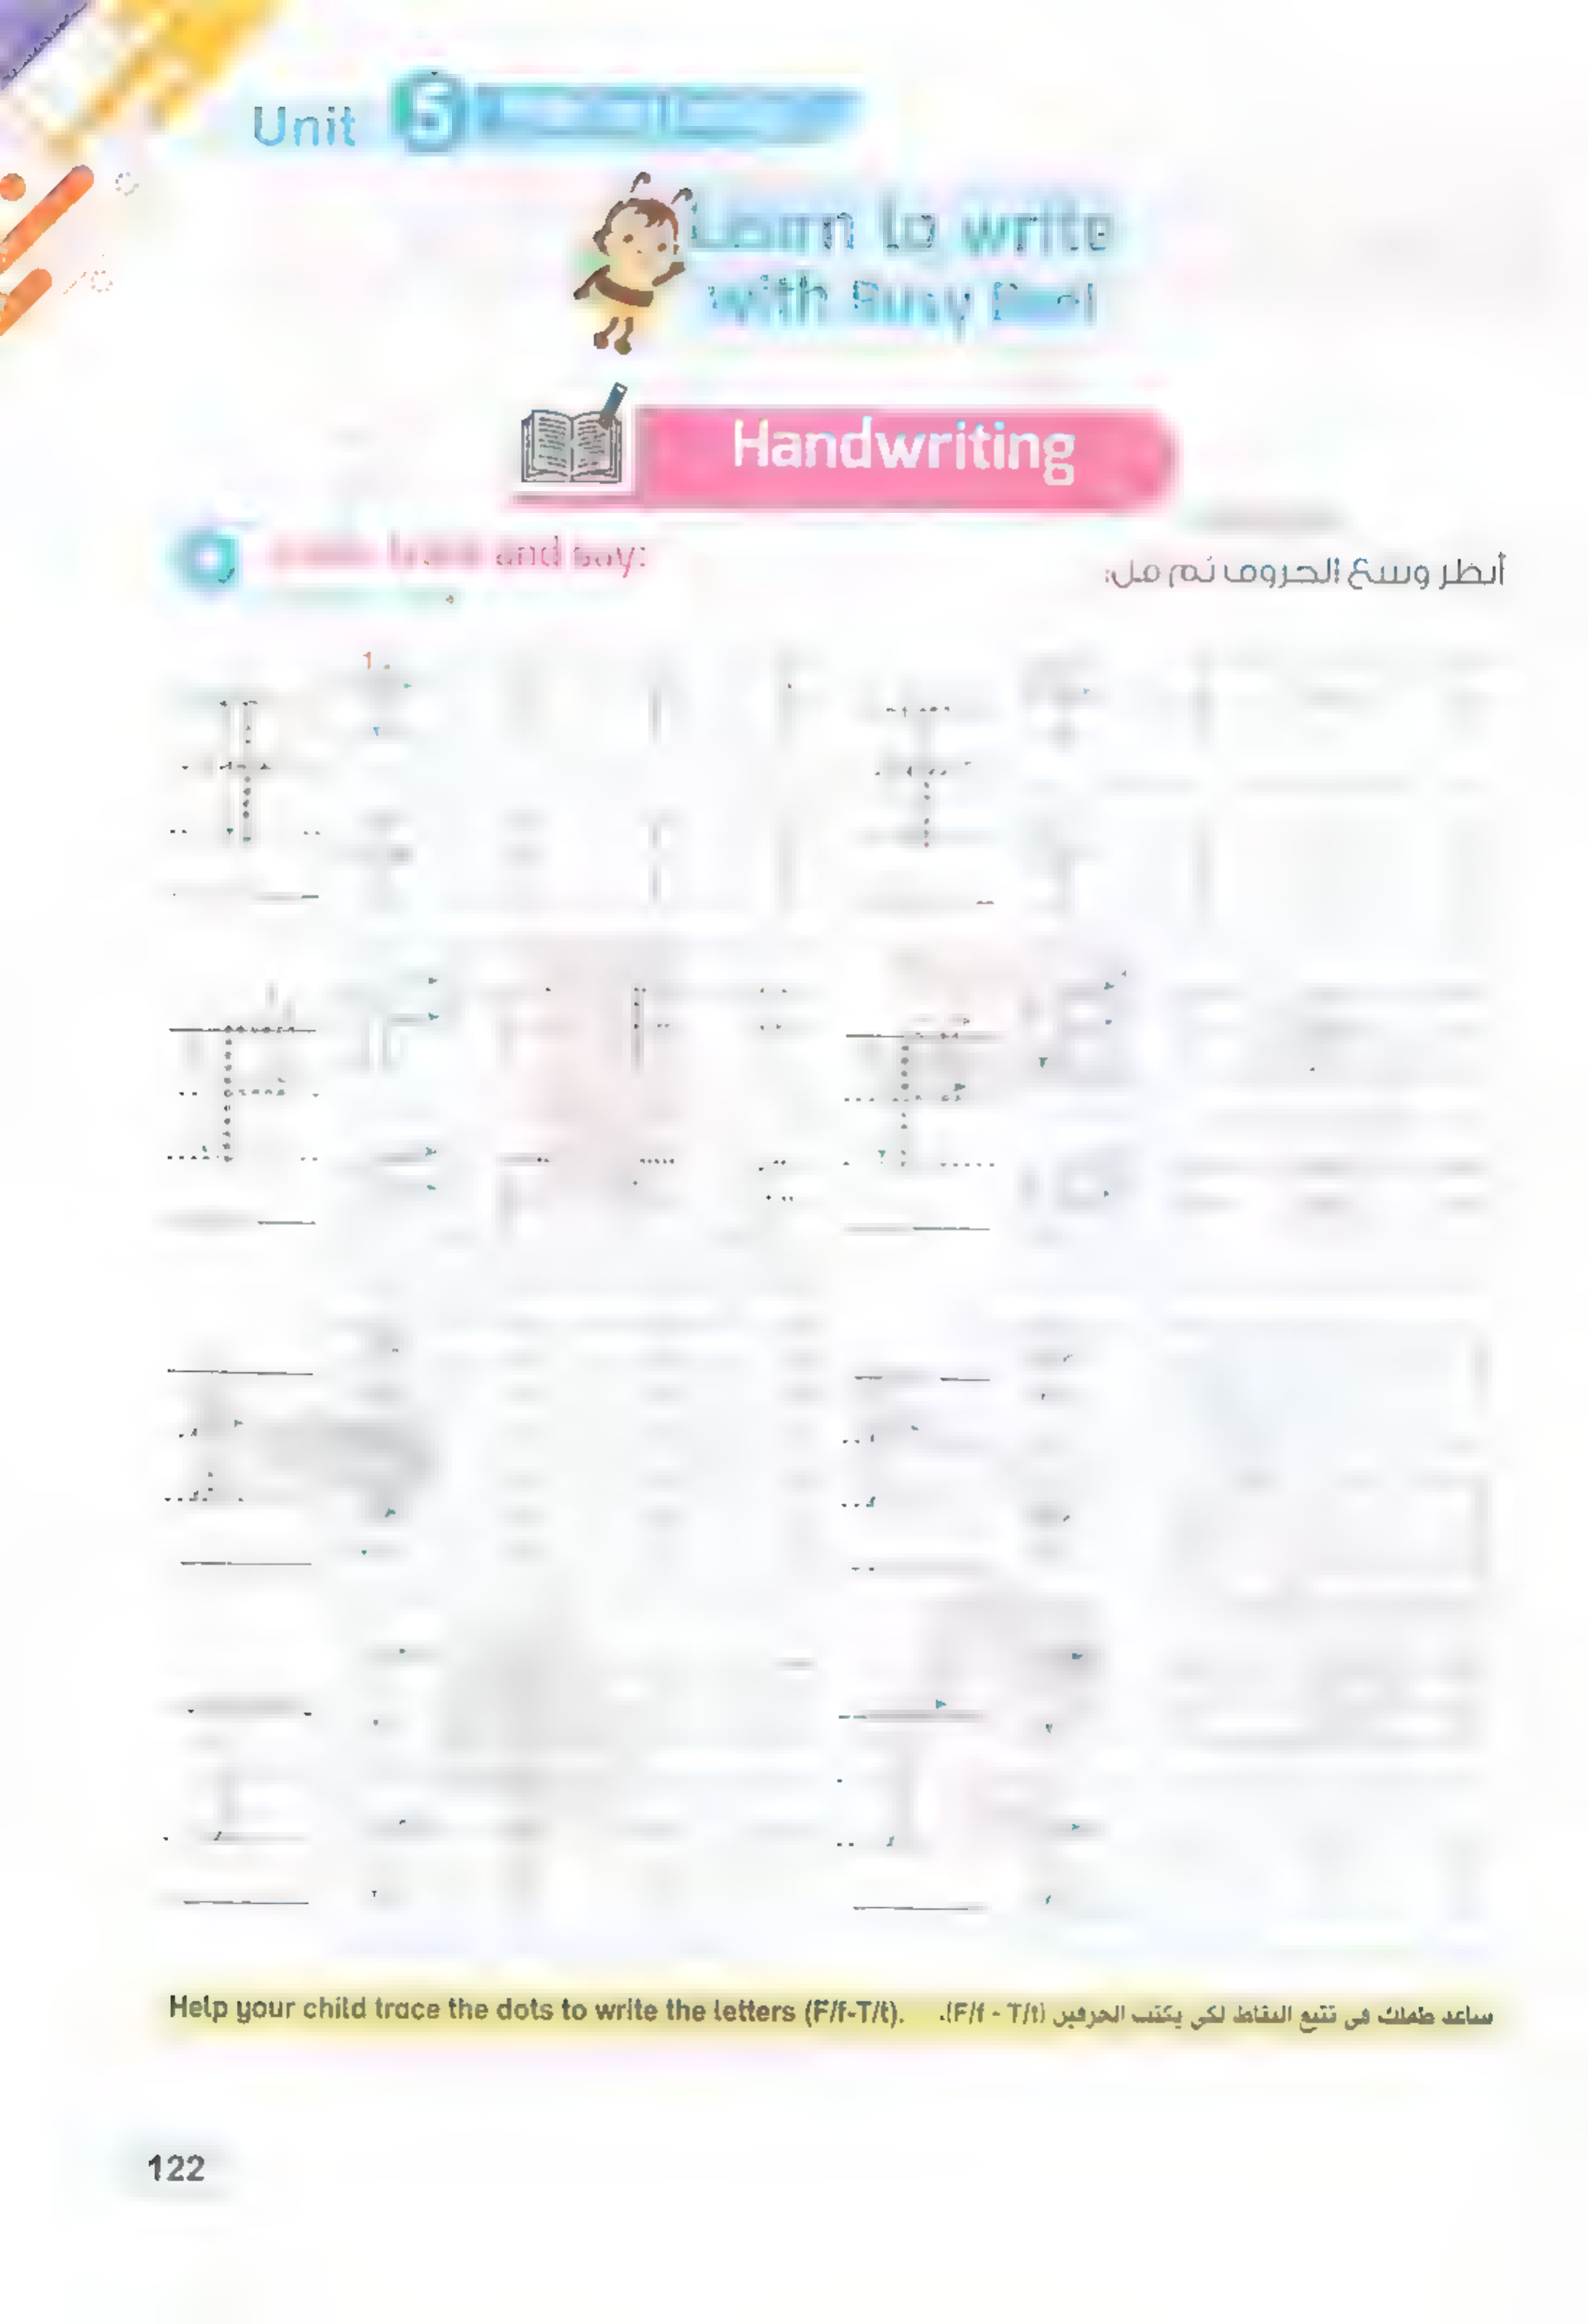 Unit 5
Learn to write
with Busy Bee!
Handwriting
and say:
أنظر وتتبع الحروف ثم قل:
Help your child trace the dots to write the letters (F/f-T/t).
ساعد طفلك فى تتبع النقاط لكى يكتب الحرفين (F/f - T/t).
122